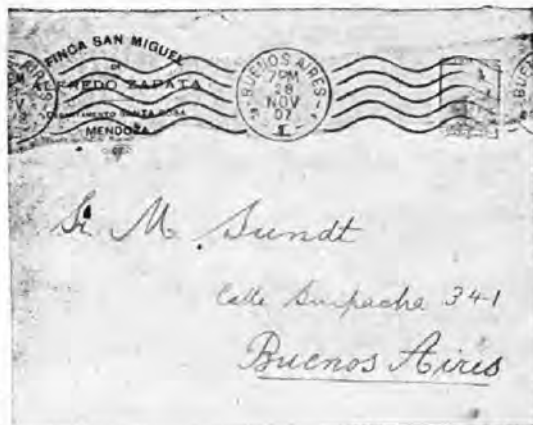 FINCA SAN MIGUEL
DE
ALFREDO ZAPATA
DEPARTAMENTO SANTA ROSA
MENDOZA
BUENOS AIRES
7 PM
28
NOV
07
1
AIRES
BUEN
Sr. M. Sundt
Calle Suipacha 341
Buenos Aires